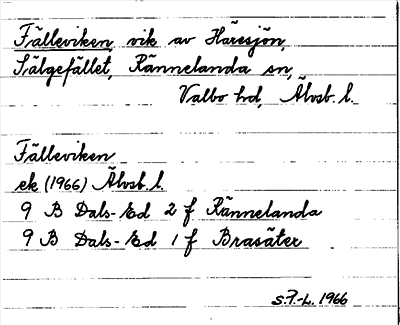 Fälleviken, vik av Häresjön,
Sälgefället, Rännelanda sn,
Valbo hd, Älvsb. l.
Fälleviken
ek (1966) Älvsb. l.
9 B Dals-Ed 2 f Rännelanda
9 B Dals-Ed 1 f Brasäter
S.F.-L. 1966